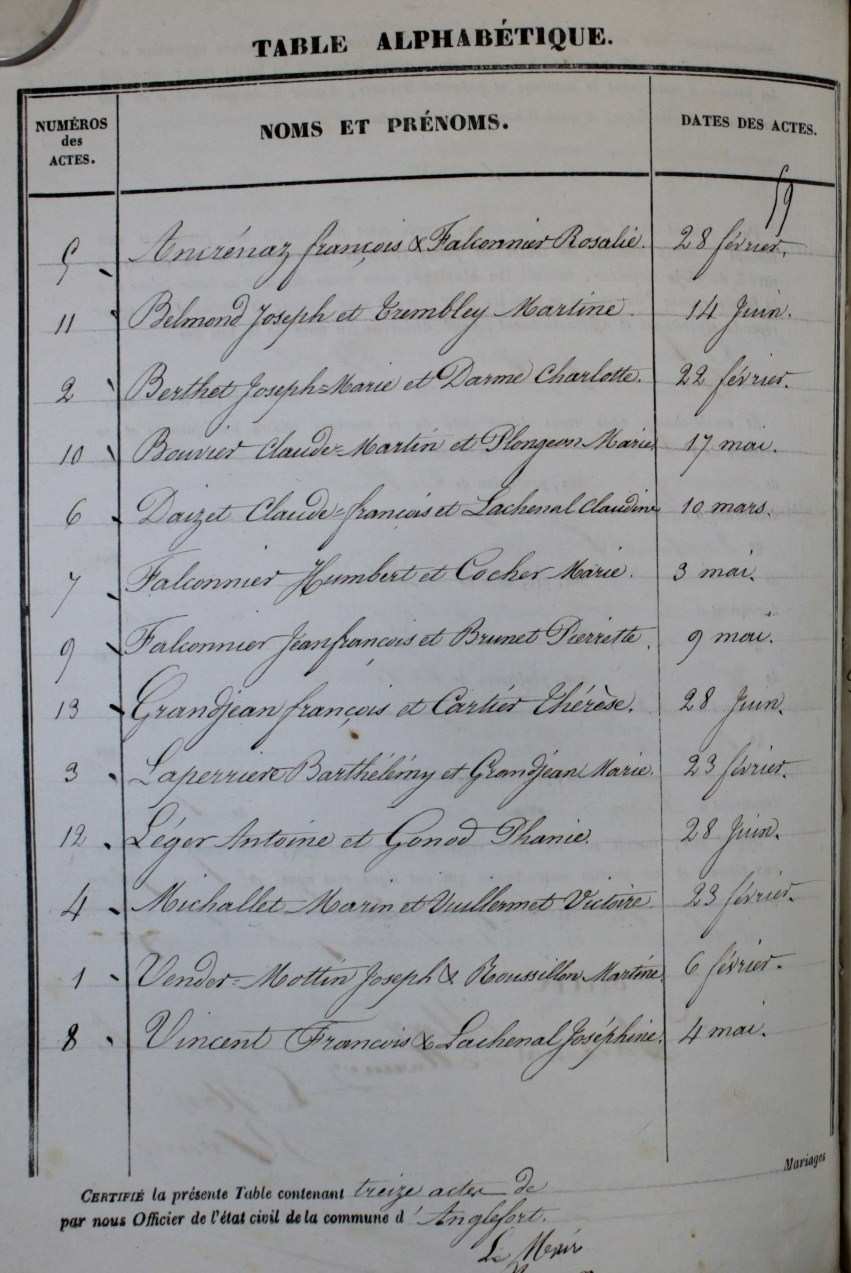 TABLE ALPHABÉTIQUE.
NUMÉROS des ACTES. NOMS ET PRÉNOMS. DATES DES ACTES.
59
5 Ancrénaz françois & Falconnier Rosalie. 28 février.
11 Belmond Joseph et Trembley Martine. 14 Juin.
2 Berthet Joseph=Marie et Darme Charlotte. 22 février.
10 Bouvier Claude=Martin et Plongeon Marie 17 mai.
6 Daizet Claude=françois et Lachenal Claudine 10 mars.
7 Falconnier Humbert et Cocher Marie. 3 mai.
9 Falconnier Jeanfrançois et Brunet Pierrette. 9 mai.
13 Grandjean françois et Cartier Thérèse. 28 Juin.
3 Laperriere Barthélémy et Grandjean Marie. 23 février.
12 Léger Antoine et Gonod Phanie. 28 Juin.
4 Michallet Marin et Vuillermet Victoire 23 février.
1 Vender=Mottin Joseph & Roussillon Martine. 6 février.
8 Vincent Francois & Lachenal Joséphine. 4 mai.
Mariages
CERTIFIÉ la présente Table contenant treize actes de
par nous Officier de l'état civil de la commune d'Anglefort.
Le Maire